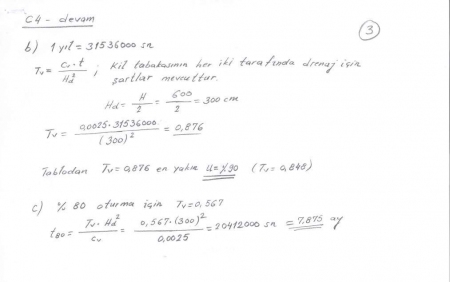 C4 - devam
3
b) 1 yıl = 31536000 sn
Tv = cv·t / Hd² ; Kil tabakasının her iki tarafında drenaj için
şartlar mevcuttur.
Hd = H/2 = 600/2 = 300 cm
Tv = 0,0025·31536000 / (300)² = 0,876
Tablodan Tv = 0,876 en yakın U = %90 (Tv = 0,848)
c) % 80 oturma için Tv = 0,567
t80 = Tv·Hd² / cv = 0,567·(300)² / 0,0025 = 20412000 sn = 7,875 ay